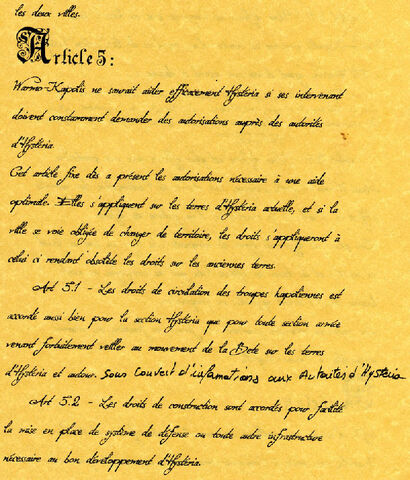 les deux villes.
Article 5 :
Warmo-Kapolis ne saurait aider efficacement Hystéria si ses intervenant
doivent constamment demander des autorisations auprès des autorités
d'Hystéria
Cet article fixe dès a présent les autorisations nécessaire à une aide
optimale. Elles s'appliquent sur les terres d'Hystéria actuelle, et si la
ville se voie obligée de changer de territoire, les droits s'appliqueront à
celui ci rendant obsolète les droits sur les anciennes terres.
Art 5.1 - Les droits de circulation des troupes kapoliennes est
accordé aussi bien pour la section Hystéria que pour toute section armée
venant fortuitement veiller au mouvement de la Bete sur les terres
d'Hystéria et autour. Sous couvert d'informations aux Autorités d'Hysteria
Art 5.2 - Les droits de construction sont accordés pour facilité
la mise en place de système de défense ou toute autre infrastructure
nécessaire au bon développement d'Hystéria.